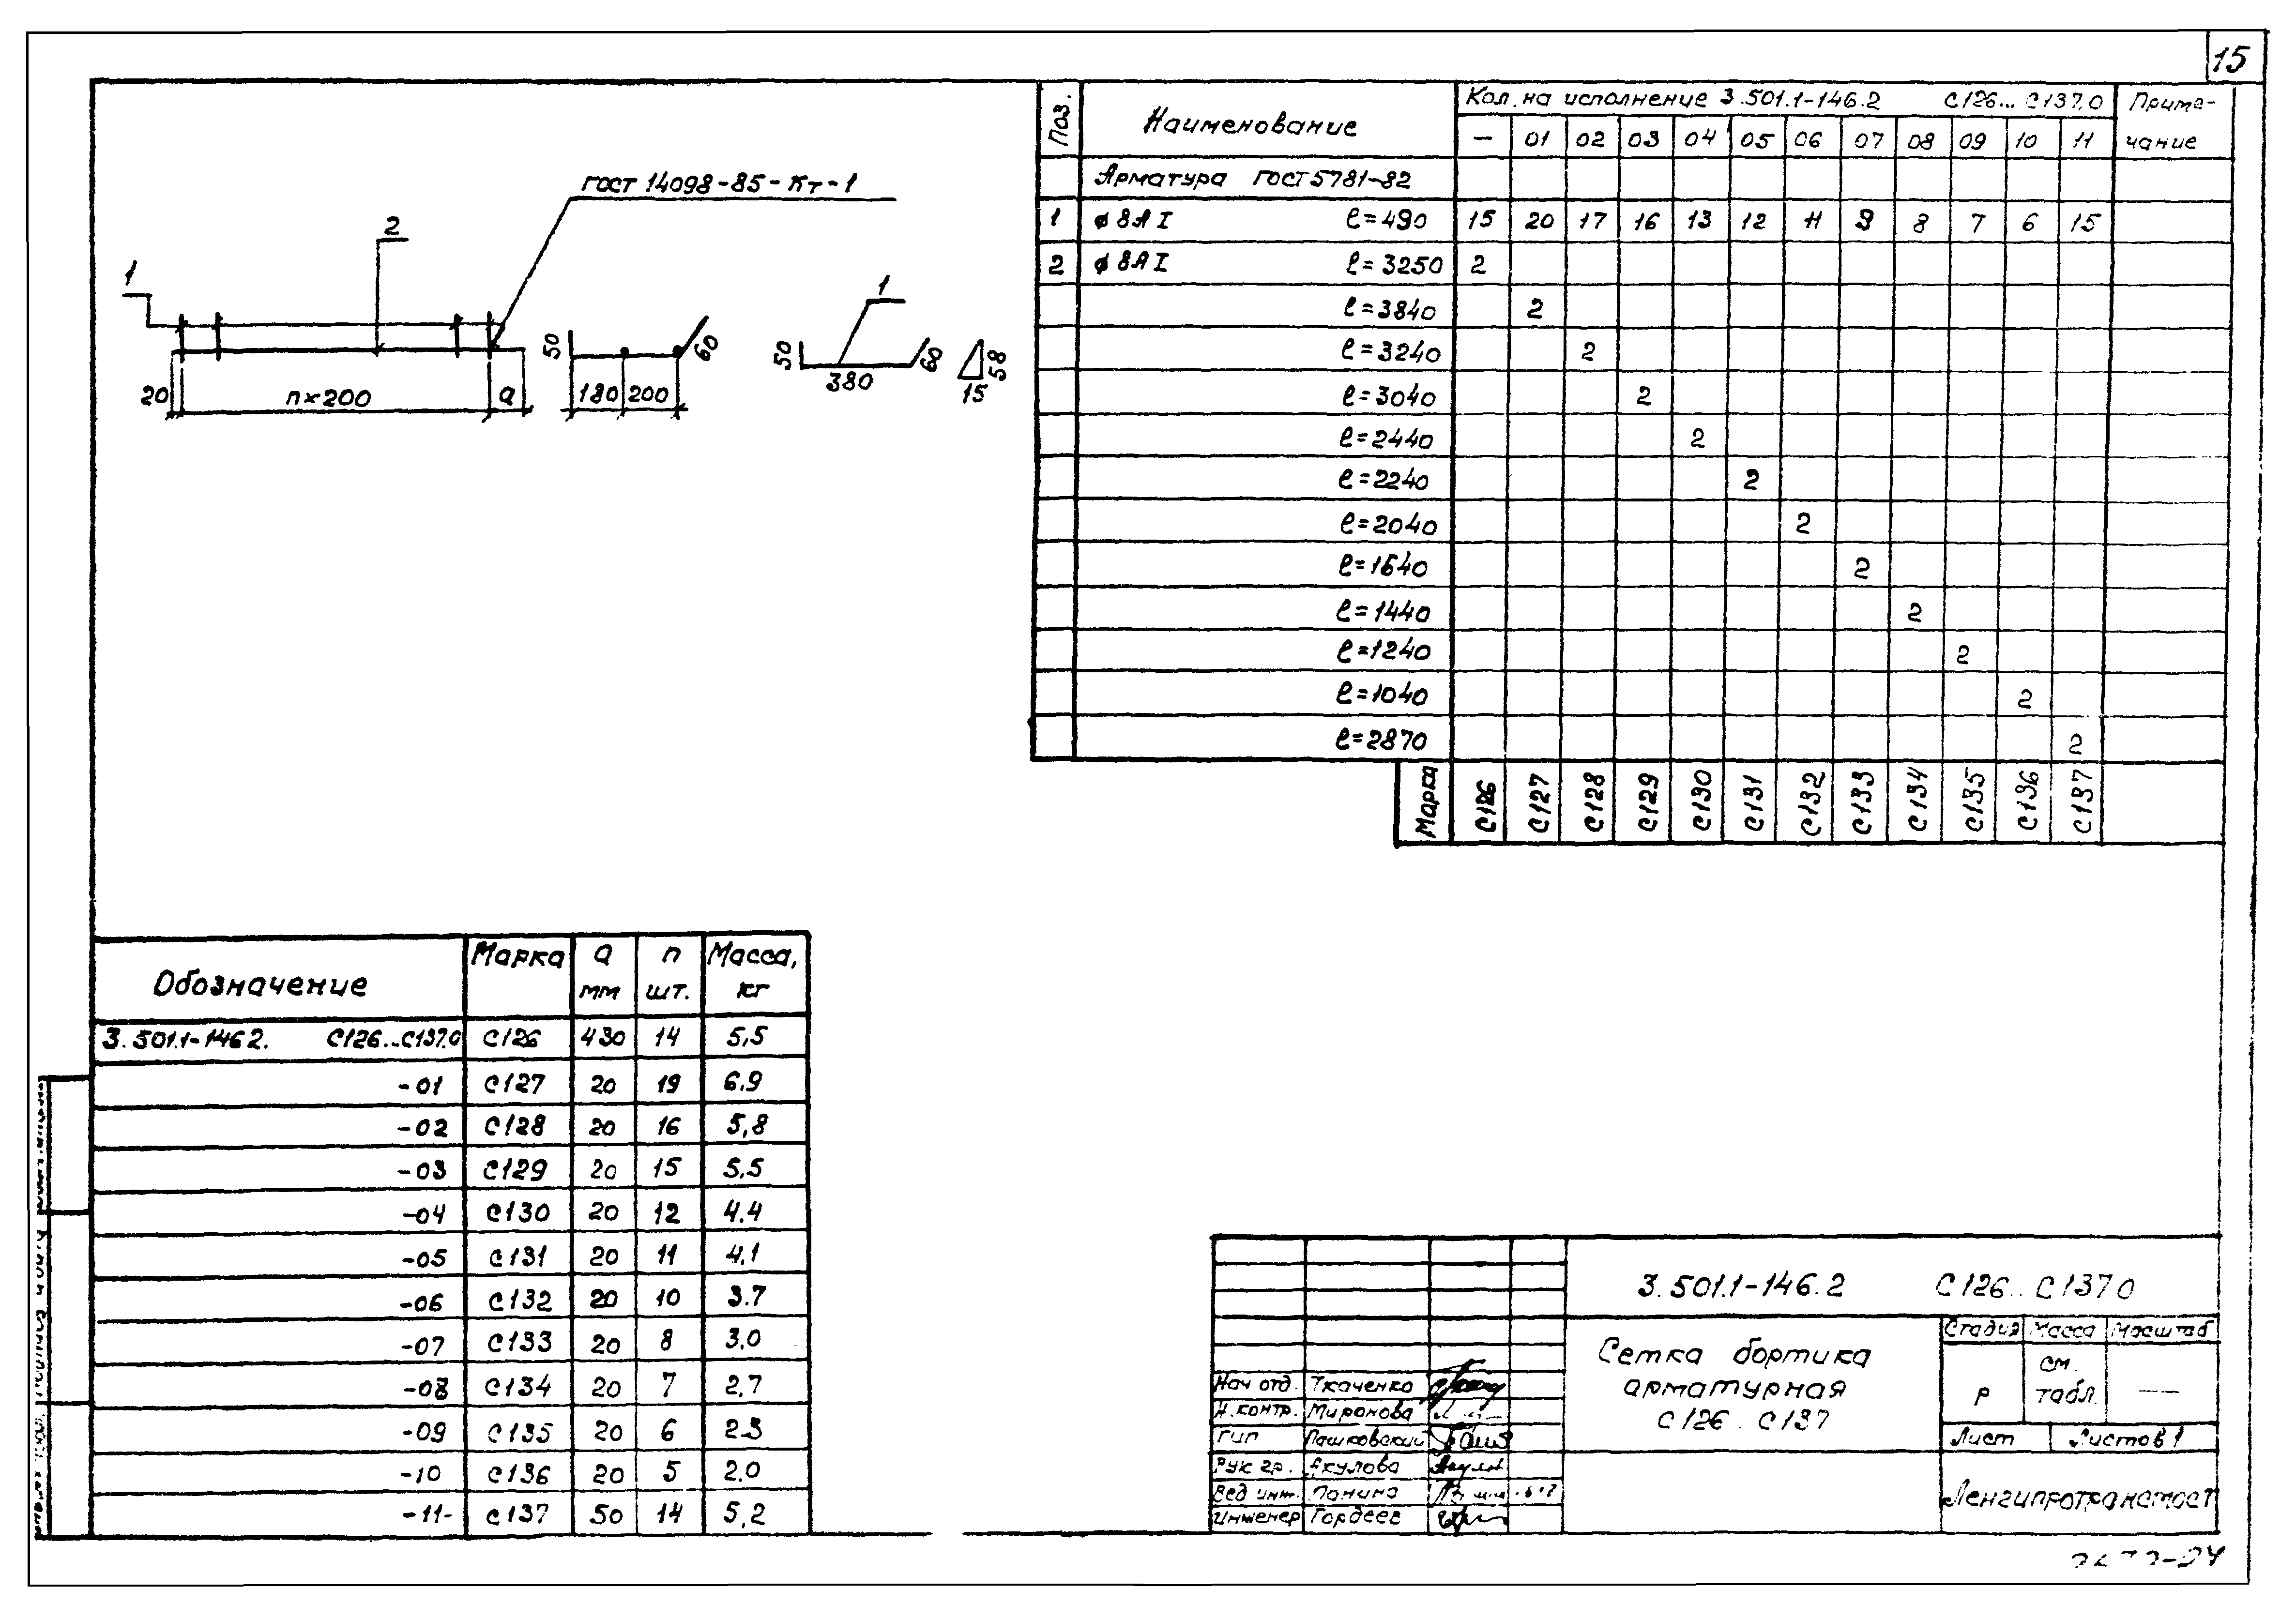 15
ГОСТ 14098-85-Кт-1
1
2
20
n×200
a
50
60
180
200
1
50
60
380
58
15
Поз.
Наименование
Кол. на исполнение 3.501.1-146.2 С126... С137.0
Приме-
чание
— 01 02 03 04 05 06 07 08 09 10 11
Арматура ГОСТ 5781-82
1 ø8АI ℓ=490 15 20 17 16 13 12 11 9 8 7 6 15
2 ø8АI ℓ=3250 2
ℓ=3840 2
ℓ=3240 2
ℓ=3040 2
ℓ=2440 2
ℓ=2240 2
ℓ=2040 2
ℓ=1640 2
ℓ=1440 2
ℓ=1240 2
ℓ=1040 2
ℓ=2870 2
Марка С126 С127 С128 С129 С130 С131 С132 С133 С134 С135 С136 С137
Обозначение Марка a мм n шт. Масса, кг
3.501.1-146 2. С126...С137.0 С126 430 14 5,5
-01 С127 20 19 6.9
-02 С128 20 16 5,8
-03 С129 20 15 5.5
-04 С130 20 12 4.4
-05 С131 20 11 4,1
-06 С132 20 10 3.7
-07 С133 20 8 3,0
-08 С134 20 7 2,7
-09 С135 20 6 2.3
-10 С136 20 5 2.0
-11- С137 50 14 5,2
3.501.1-146.2 С126.. С137 0
Сетка бортика
арматурная
С126 . С137
Стадия Масса Масштаб
Р см. табл. —
Лист Листов 1
Ленгипротрансмост
Нач отд. Ткаченко
Н.контр. Миронова
Гип Пашковский
Рук гр. Акулова
Вед инж. Панина
Инженер Гордеев